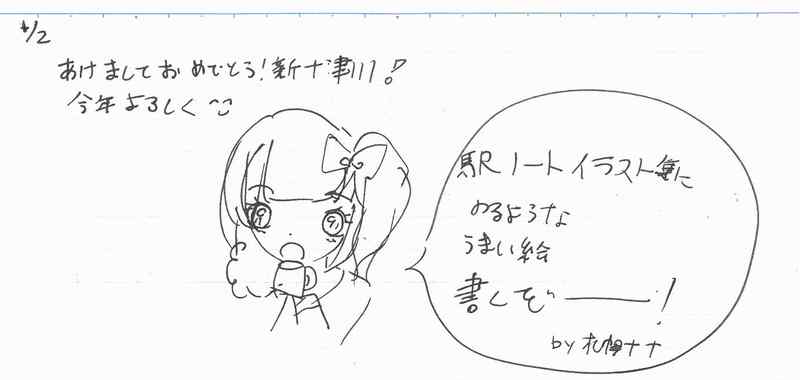 1/2
あけましておめでとう！新十津川！
今年よろしく
駅ノートイラスト集に
のるような
うまい絵
書くぞー！
by 札幌ナナ